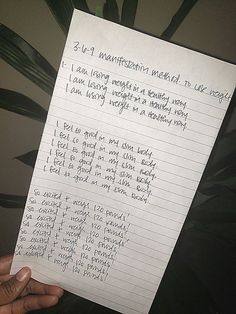 3-6-9 manifestation method to lose weight
1. I am losing weight in a healthy way
I am losing weight in a healthy way
I am losing weight in a healthy way
I feel so good in my slim body.
I feel so good in my slim body.
I feel so good in my slim body.
I feel so good in my slim body.
I feel so good in my slim body.
I feel so good in my slim body.
So excited I weigh 120 pounds!
So excited I weigh 120 pounds!
So excited I weigh 120 pounds!
So excited I weigh 120 pounds!
So excited I weigh 120 pounds!
So excited I weigh 120 pounds!
So excited I weigh 120 pounds!
So excited I weigh 120 pounds!
So excited I weigh 120 pounds!